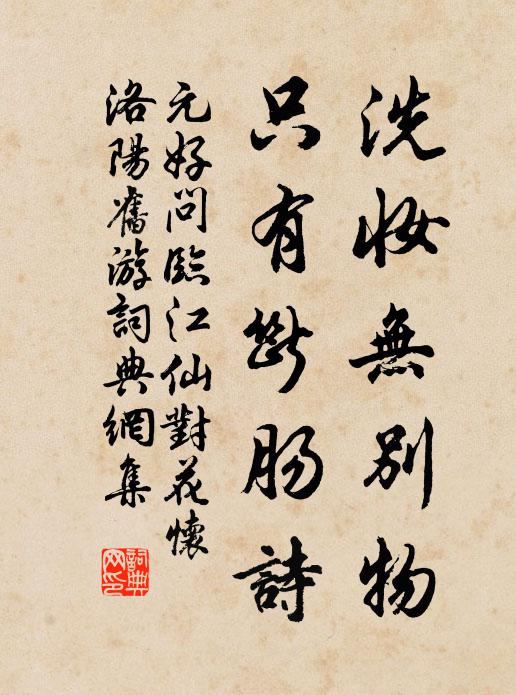 洗妝無別物
只有斷腸詩
元好問臨江仙對花懷
洛陽舊游詞典網集
詞典网印